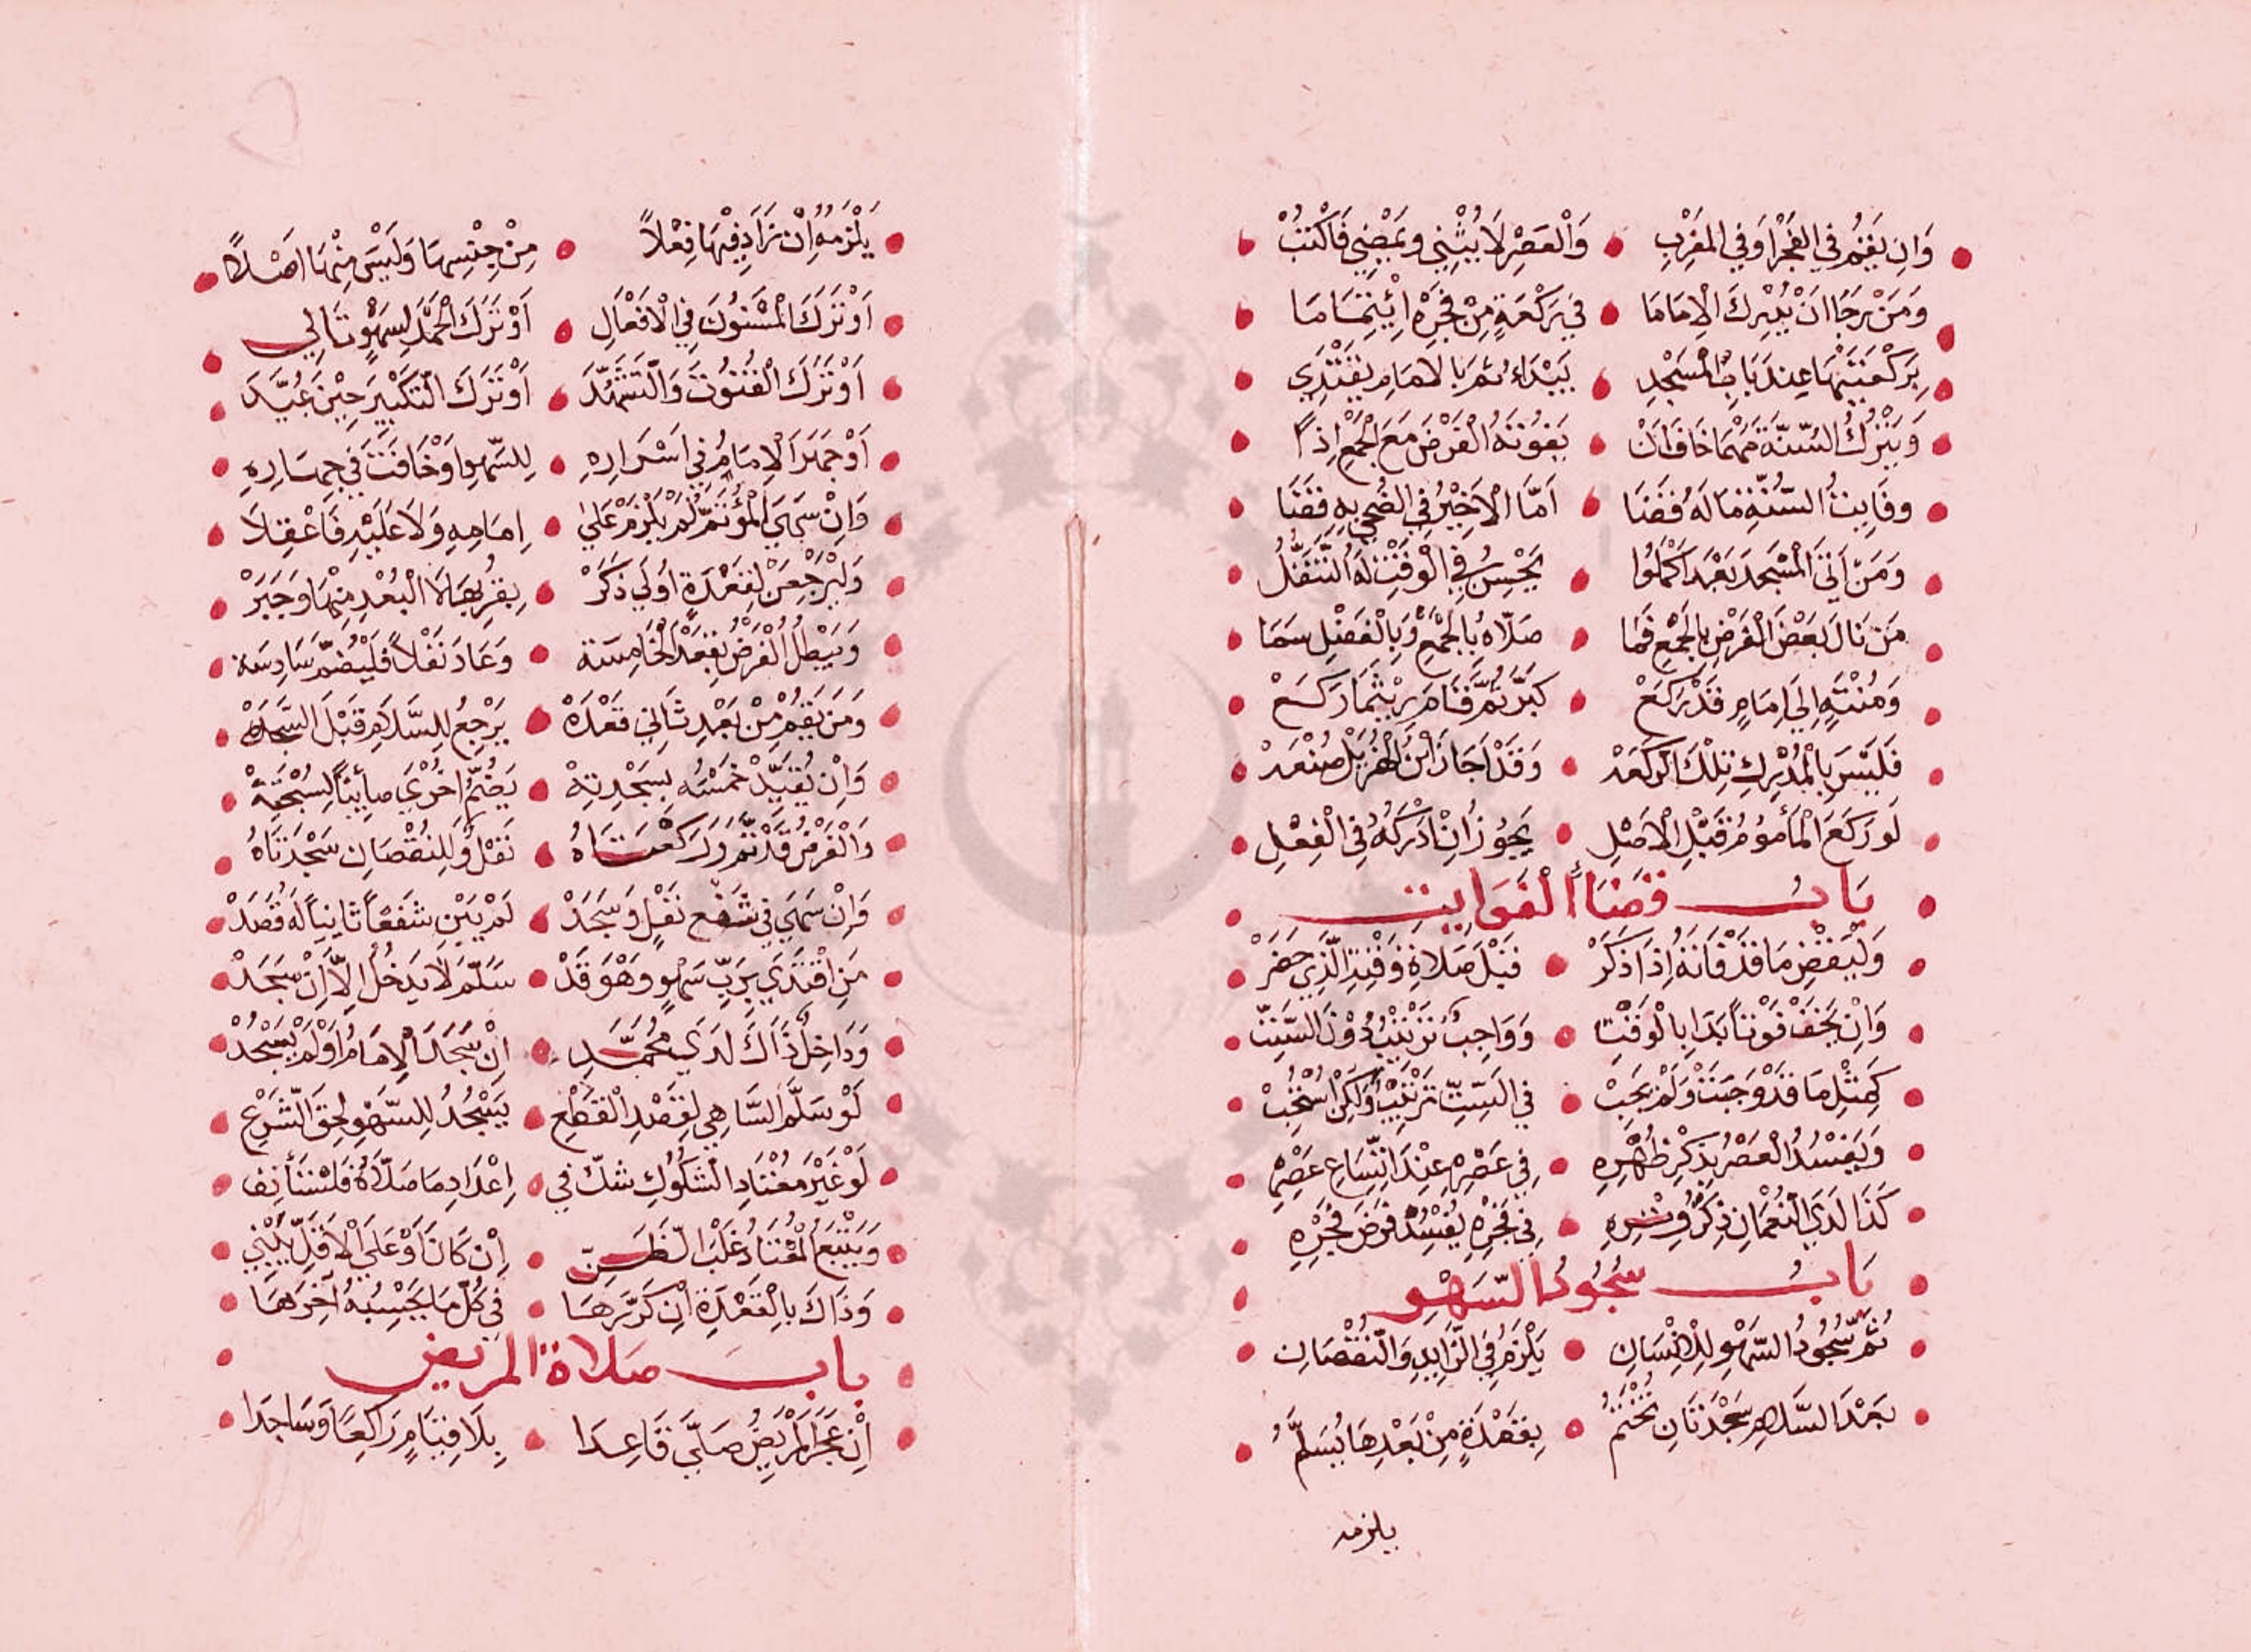 وَاِن يَقُمْ فِي الفَجْرِ اَوْ فِي المَغْرِبِ • وَالْعَصْرِ لَا يُثْنِي وَيَمْضِي فَاكْتُبْ
وَمَنْ رَجَا اَنْ يُدْرِكَ الْاِمَامَا • فِي رَكْعَةٍ مِنْ فَجْرِهِ اِئْتِمَامَا
بِرَكْعَتَيْهَا عِندَ بَابِ الْمَسْجِدِ • يَبْدَاءُ ثُمَّ بِالاِمَامِ يَقْتَدِي
وَيَتْرُكُ السُّنَّةَ مَهْمَا خَافَ اَنْ • يَفُوتَهُ الْفَرْضَ مَعَ الْجَمْعِ اِذاً
وفَايِتُ السُّنَّةِ مَا لَهُ قَضَا • اَمَّا الْاَخِيْرُ فِي الضُّحَى بِهِ قَضَا
وَمَنْ اَتَى الْمَسْجِدَ بَعْدَ اَكْمَلُوا • يَحْسُنُ فِي الْوَقْتِ لَهُ التَّنَفُّلُ
مَنْ نَالَ بَعْضَ الْفَرْضِ بِالْجَمْعِ فَمَا • صَلَّاهُ بِالْجَمْعِ وَبِالْفَضْلِ سَمَا
وَمُنْتَهٍ اِلَى اِمَامٍ قَدْ رَكَعْ • كَبَّرَ ثُمَّ قَامَ رَيْثَمَا رَكَعْ
فَلَيْسَ بِالْمُدْرِكِ تِلْكَ الرَّكْعَهْ • وَقَدْ اَجَازَ ابْنُ الْهُزَيْلِ صُنْعَهْ
لَو رَكَعَ الْمَأْمُومُ قَبْلِ الْاَصْلِ • يَجُوزُ اِنْ اَدْرَكَهُ فِي الْفِعْلِ
بَابُ قَضَاأِ الْفَوَايِت
وَلْيَقْضِ مَا قَدْ فَاتَهُ اِذَا ذَكَرْ • قَبْلَ صَلَاةِ وَقْتِهِ الَّذِي حَضَرْ
وَاِنْ يَخَفْ فَوْتاً بَدَا بِالْوَقْتِ • وَوَاجِبٌ تَرْتِيْبُ دُوْنَ السِّتِّ
كَمِثْلِ مَا قَدْ وَجَبَتْ وَلَمْ يَجِبْ • فِي السِّتِّ تَرْتِيْبٌ وَلَكِنْ اسْتُحِبْ
وَيَفْسُدُ الْعَصْرُ بِذِكْرِ ظُهْرِهِ • فِي عَصْرِهِ عِنْدَ اتِّسَاعِ عَصْرِهِ
كَذَا لَدَي النُّعْمَانِ ذِكْرُ وِتْرِهِ • فِي فَجْرِهِ يُفْسِدُ فَرْضَ فَجْرِهِ
بَابُ سُجُودِ السَّهْوِ
ثُمَّ سُجُودُ السَّهْوِ لِلْاِنْسَانِ • يَلْزَمُ فِي الزَّايِدِ وَالنُّقْصَانِ
بَعْدَ السَّلَامِ سَجْدَتَانِ تُخْتَمُ • بِقَعْدَةٍ مِنْ بَعْدِهَا يُسَلِّمُ
يلزمه
يَلْزَمُهُ اِنْ زَادَ فِيْهَا فِعْلاً • مِنْ جِنْسِهَا وَلَيْسَ مِنْهَا اَصْلاً
اَوْ تَرَكَ الْمَسْنُونَ فِي الْاَفْعَالِ • اَوْ تَرَكَ الْحَمْدَ لِسَهْوٍ تَالِي
اَوْ تَرَكَ الْقُنُوتَ وَالتَّشَهُّدَ • اَوْ تَرَكَ التَّكْبِيْرَ حِيْنَ عَيَّدَ
اَوْ جَهَرَ الْاِمَامُ فِي اَسْرَارِهِ • لِلسَّهْوِ اَوْ خَافَتَ فِي جِهَارِهِ
وَاِنْ سَهَي الْمُؤْتَمُّ لَمْ يَلْزَمْ عَلَي • اِمَامِهِ وَلَا عَلَيْهِ فَاعْقِلَا
وَلْيَرْجِعَنْ لِقَعْدَةٍ اُولَي ذَكَرْ • بِقُرْبِهَا لَا الْبُعْدِ مِنْهَا وَجَبَرْ
وَيَبْطُلُ الْفَرْضُ بِقَعْدِ الْخَامِسَة • وَعَادَ نَفْلاً فَلْيَضُمَّ سَادِسَة
وَمَنْ يَقُمْ مِنْ بَعْدِ ثَانِي قَعْدَهْ • يَرْجِعُ لِلسَّلَامِ قَبْلَ السَّجْدَهْ
وَاِنْ يُقَيِّدْ خَمْسَهُ بِسَجْدِتِهْ • يَضُمُّ اُخْرَي صَائِباً لِسُبْحَتِهْ
وَالْفَرْضُ قَدْ تَمَّ وَرَكْعَتَاهُ • نَفْلٌ وَلِلنُقْصَانِ سَجْدَتَاهُ
وَاِنْ سَهَي فِي شَفْعِ نَفْلٍ وَسَجَدْ • لَمْ يَبْنِ شَفْعاً ثَانِياً لَهُ قَصَدْ
مَنِ اقْتَدَي بِرَبِّ سَهْوٍ وَهْوَ قَدْ • سَلَّمَ لَا يَدْخُلُ اِلَّا اِنْ سَجَدْ
وَدَاخِلٌ ذَاكَ لَدَي مُحَمَّدِ • اِنْ سَجَدَ الْاِمَامُ اَوْ لَمْ يَسْجُدْ
لَوْ سَلَّمَ السَّاهِي لِقَصْدِ الْقَطْعِ • يَسْجُدُ لِلسَّهْوِ لِحَقِّ الشَّرْعِ
لَوْ غَيْرَ مُعْتَادِ الشُّكُوكِ شَكَّ فِي • اِعْدَادِ مَا صَلَّاهُ فَلْيَسْتَأْنِف
وَيَتْبَعُ الْمُعْتَادُ غَلْبَ الظَّنِّ • اِنْ كَانَ اَوْ عَلَي الْاَقَلِّ يَبْنِي
وَذَاكَ بِالْقَعْدَةِ اِنْ كَرَّرَهَا • فِي كُلِّ مَا يَحْسِبُهُ آخِرَهَا
بابُ صَلاةِ المريض
اِنْ عَجَزَ المَرْيِضُ صَلَّي قَاعِدَا • بِلَا قِيَامٍ رَاكِعًا وَسَاجِدَا